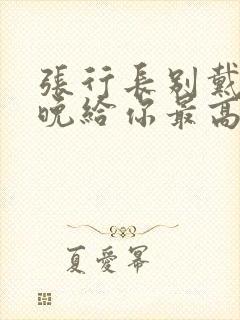 張行長別戴
晚給你最高
夏愛冪